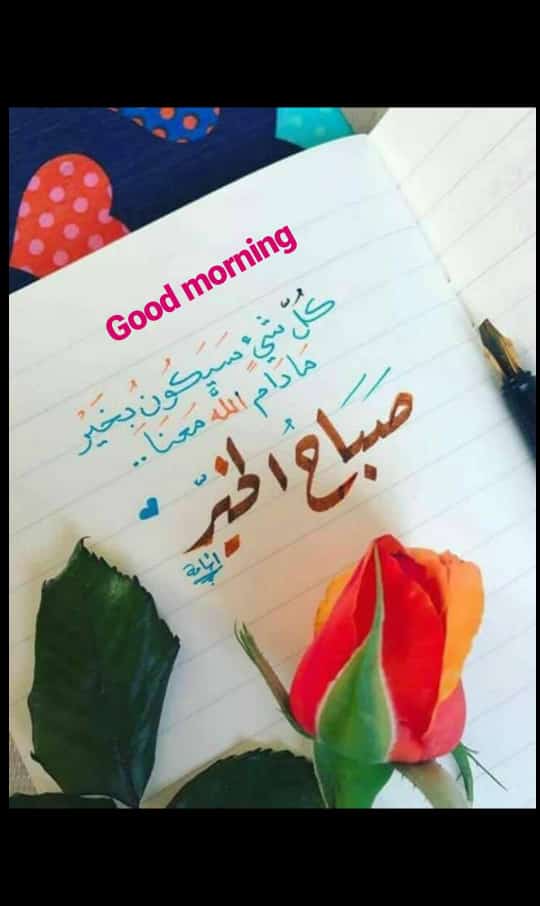 Good morning
كُلّ شَيْءٍ سَيَكُونُ بُخَيْر
مَادَام اللهُ مَعَنَا..
صَبَاحُ الخَيْرّ